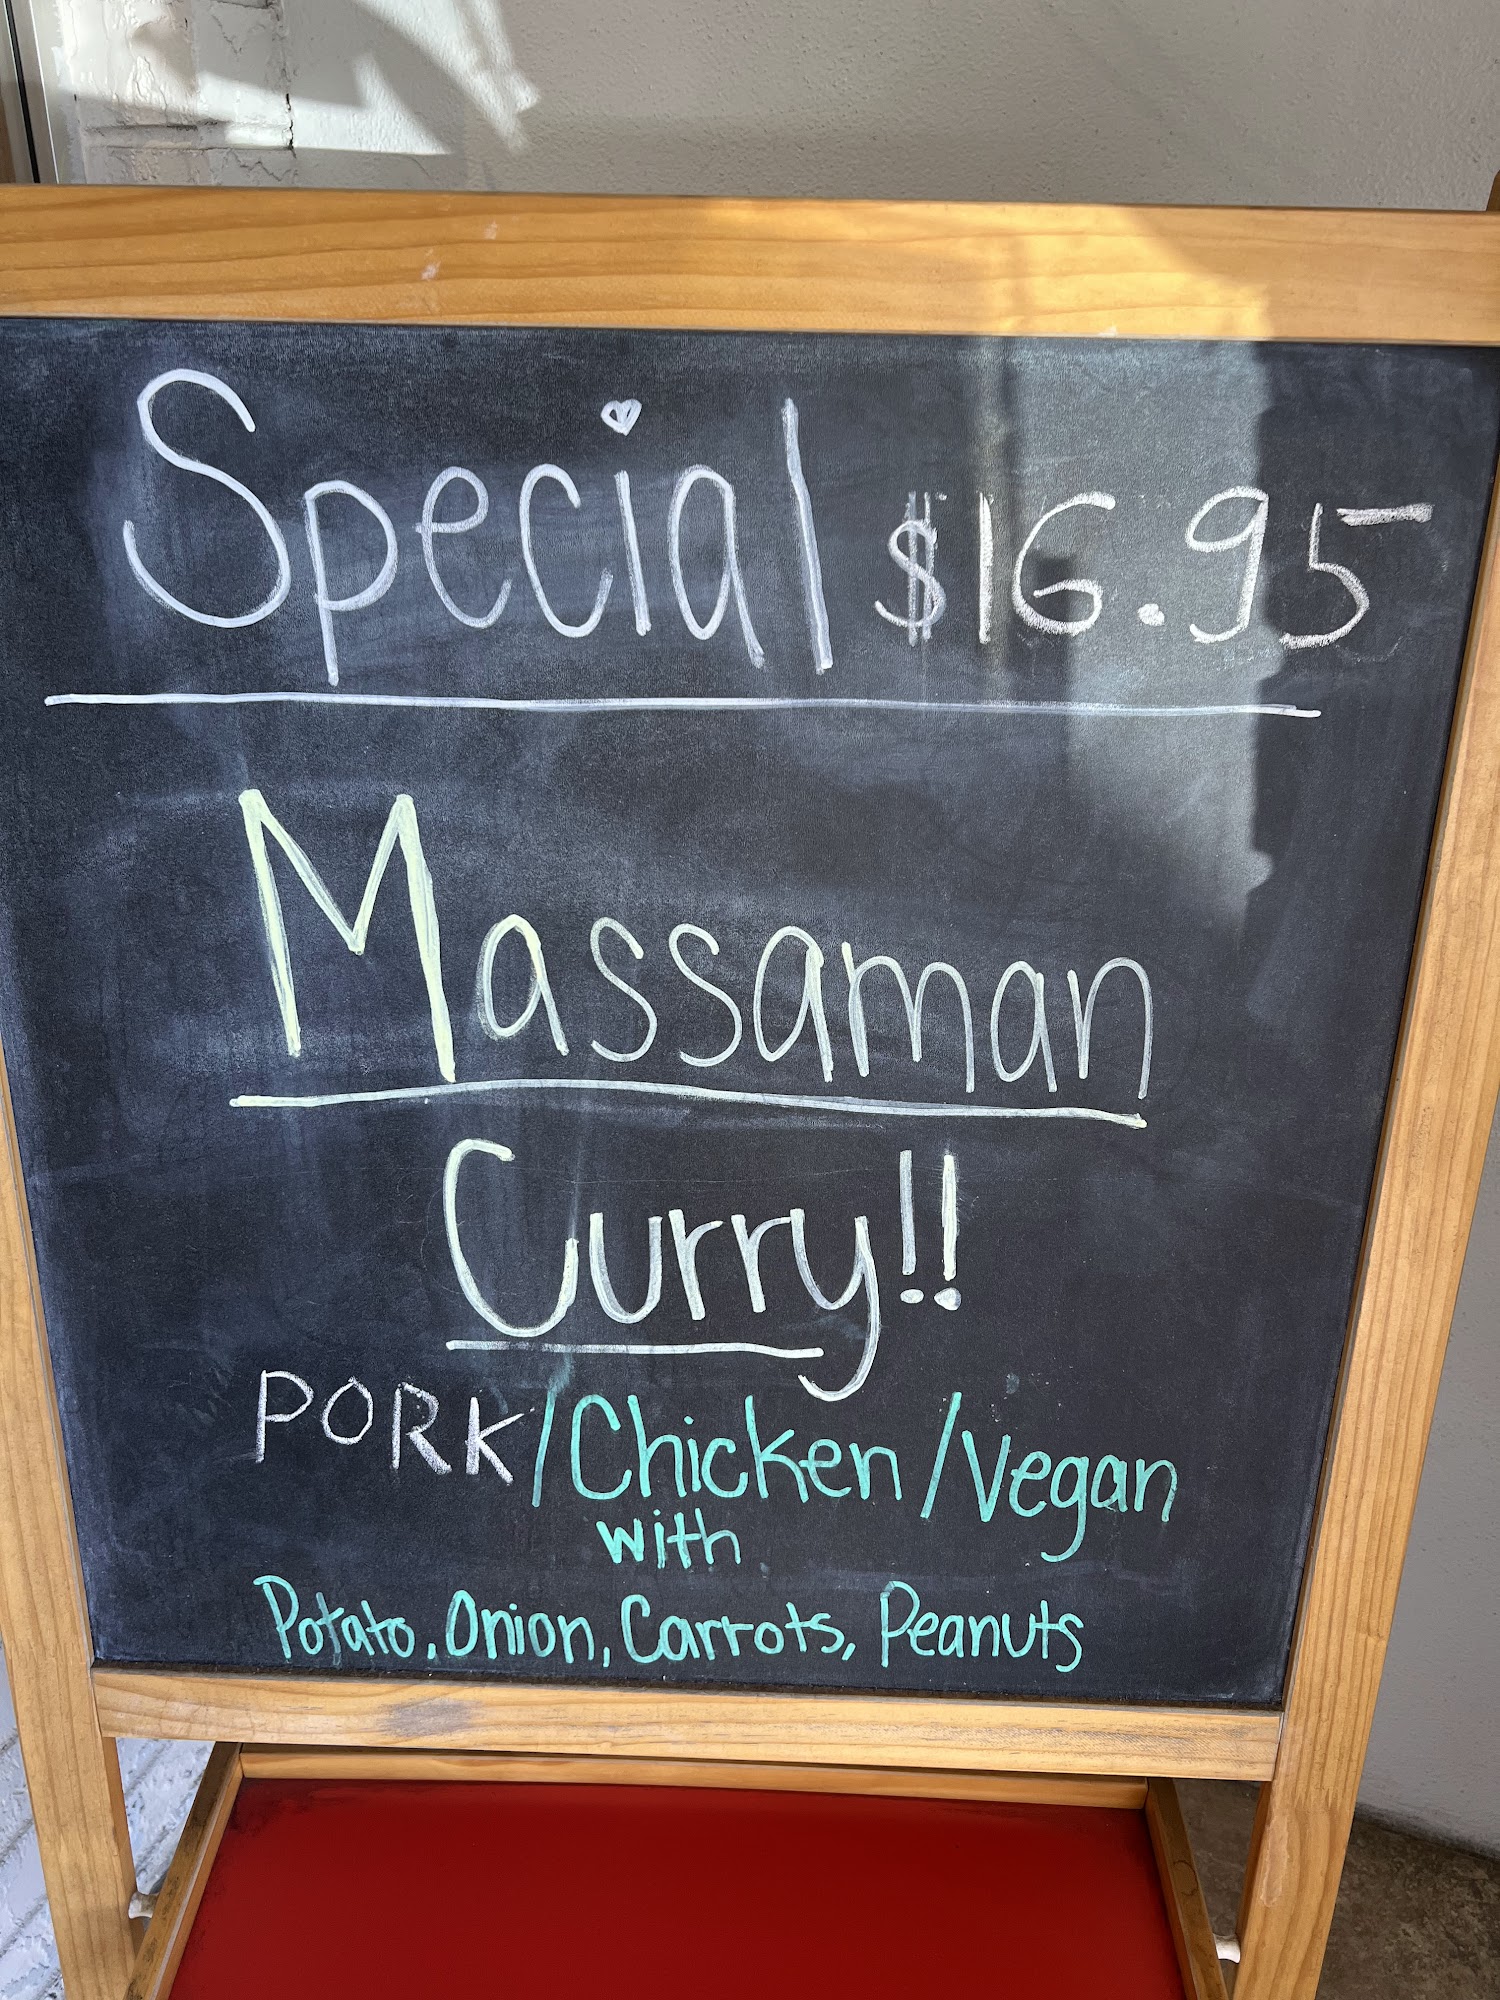 Special $16.95
Massaman
Curry!!
PORK/Chicken/Vegan
with
Potato, Onion, Carrots, Peanuts